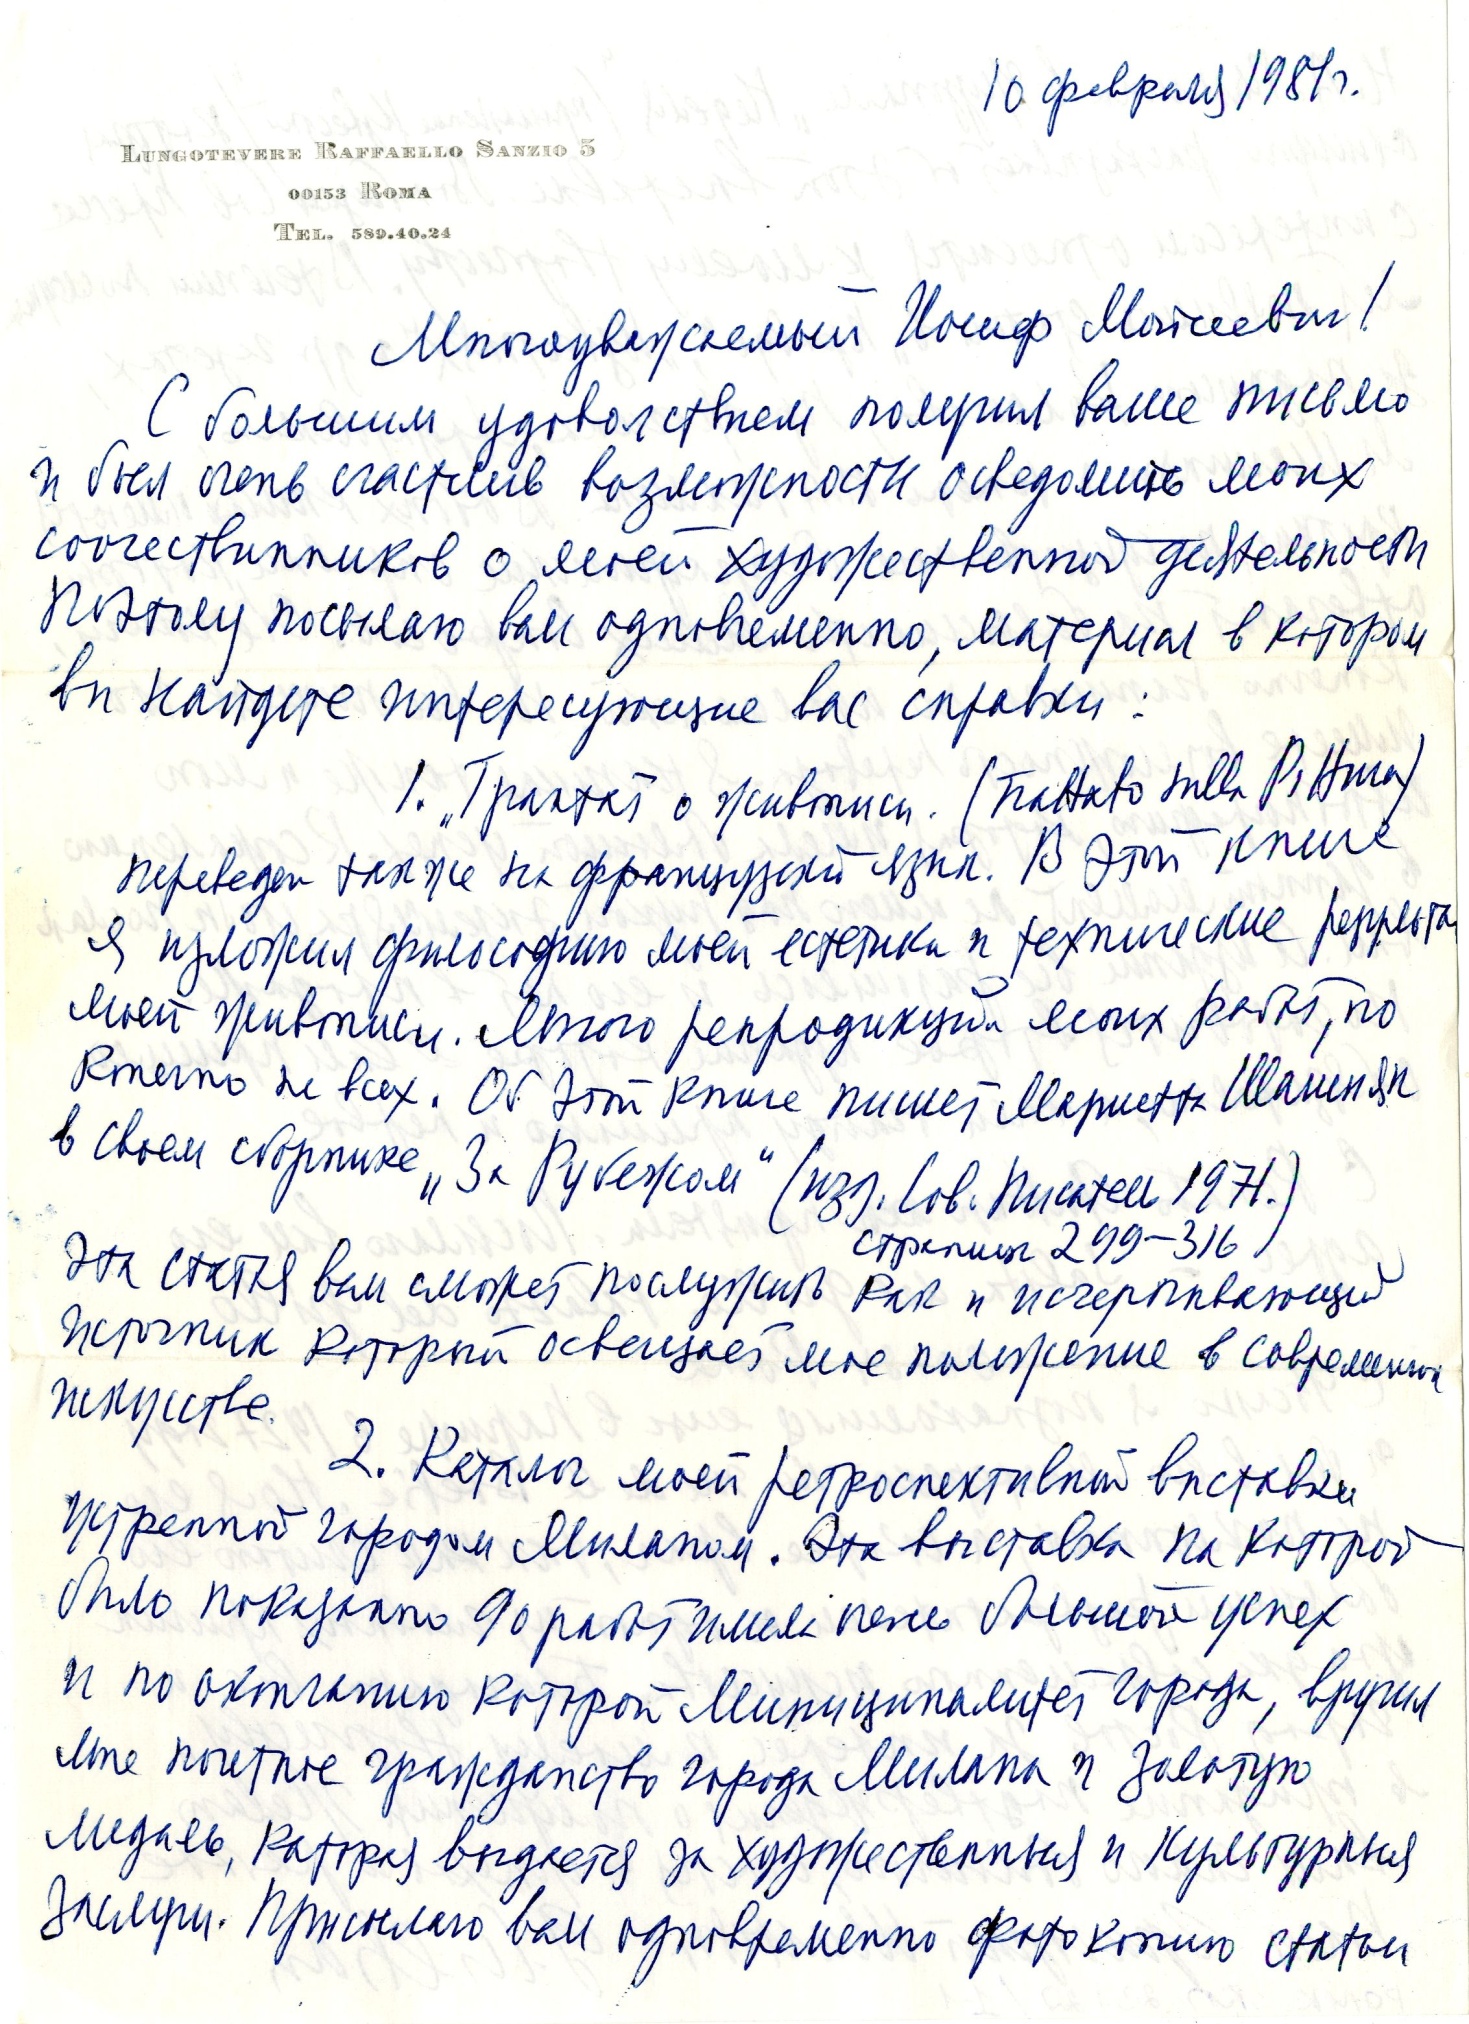 10 февраля 1981г.
LUNGOTEVERE RAFFAELLO SANZIO 5
00153 ROMA
TEL. 589.40.24
Многоуважаемый Иосиф Моисеевич!
С большим удоволствием получил ваше письмо
и был очень счастлив возможности осведомить моих
соотчествинников о моей художественной деятельности
Поэтому посылаю вам одновременно, материал в котором
вы найдете интересующие вас справки:
1. „Трактат о живописи. (Trattato sulla Pittura)
переведен также на французский язык. В этой книге
я изложил философию моей естетики и технические
моей живописи. Много репродикций моих работ, но
конечно не всех. Об этой книге пишет Мариетта Шагинян
в своем сборнике „За Рубежом“ (изд. Сов. Писатель 1971.)
страницы 299-316)
Эта статья вам сможет послужить как и исчерпивающий
источник который освещает мое положение в современном
искусстве.
2. Каталог моей ретроспективной выставки
устренной городом Миланом. Эта выставка на которой
било показанно 90 работ имела очень большой успех
и по окончанию которой Миниципалитет города, вручил
мне почетное гражданство города Милана и золотую
медаль, которая выдается за художественныя и культурныя
заслуги. Присылаю вам одновременно фотокопию статьи